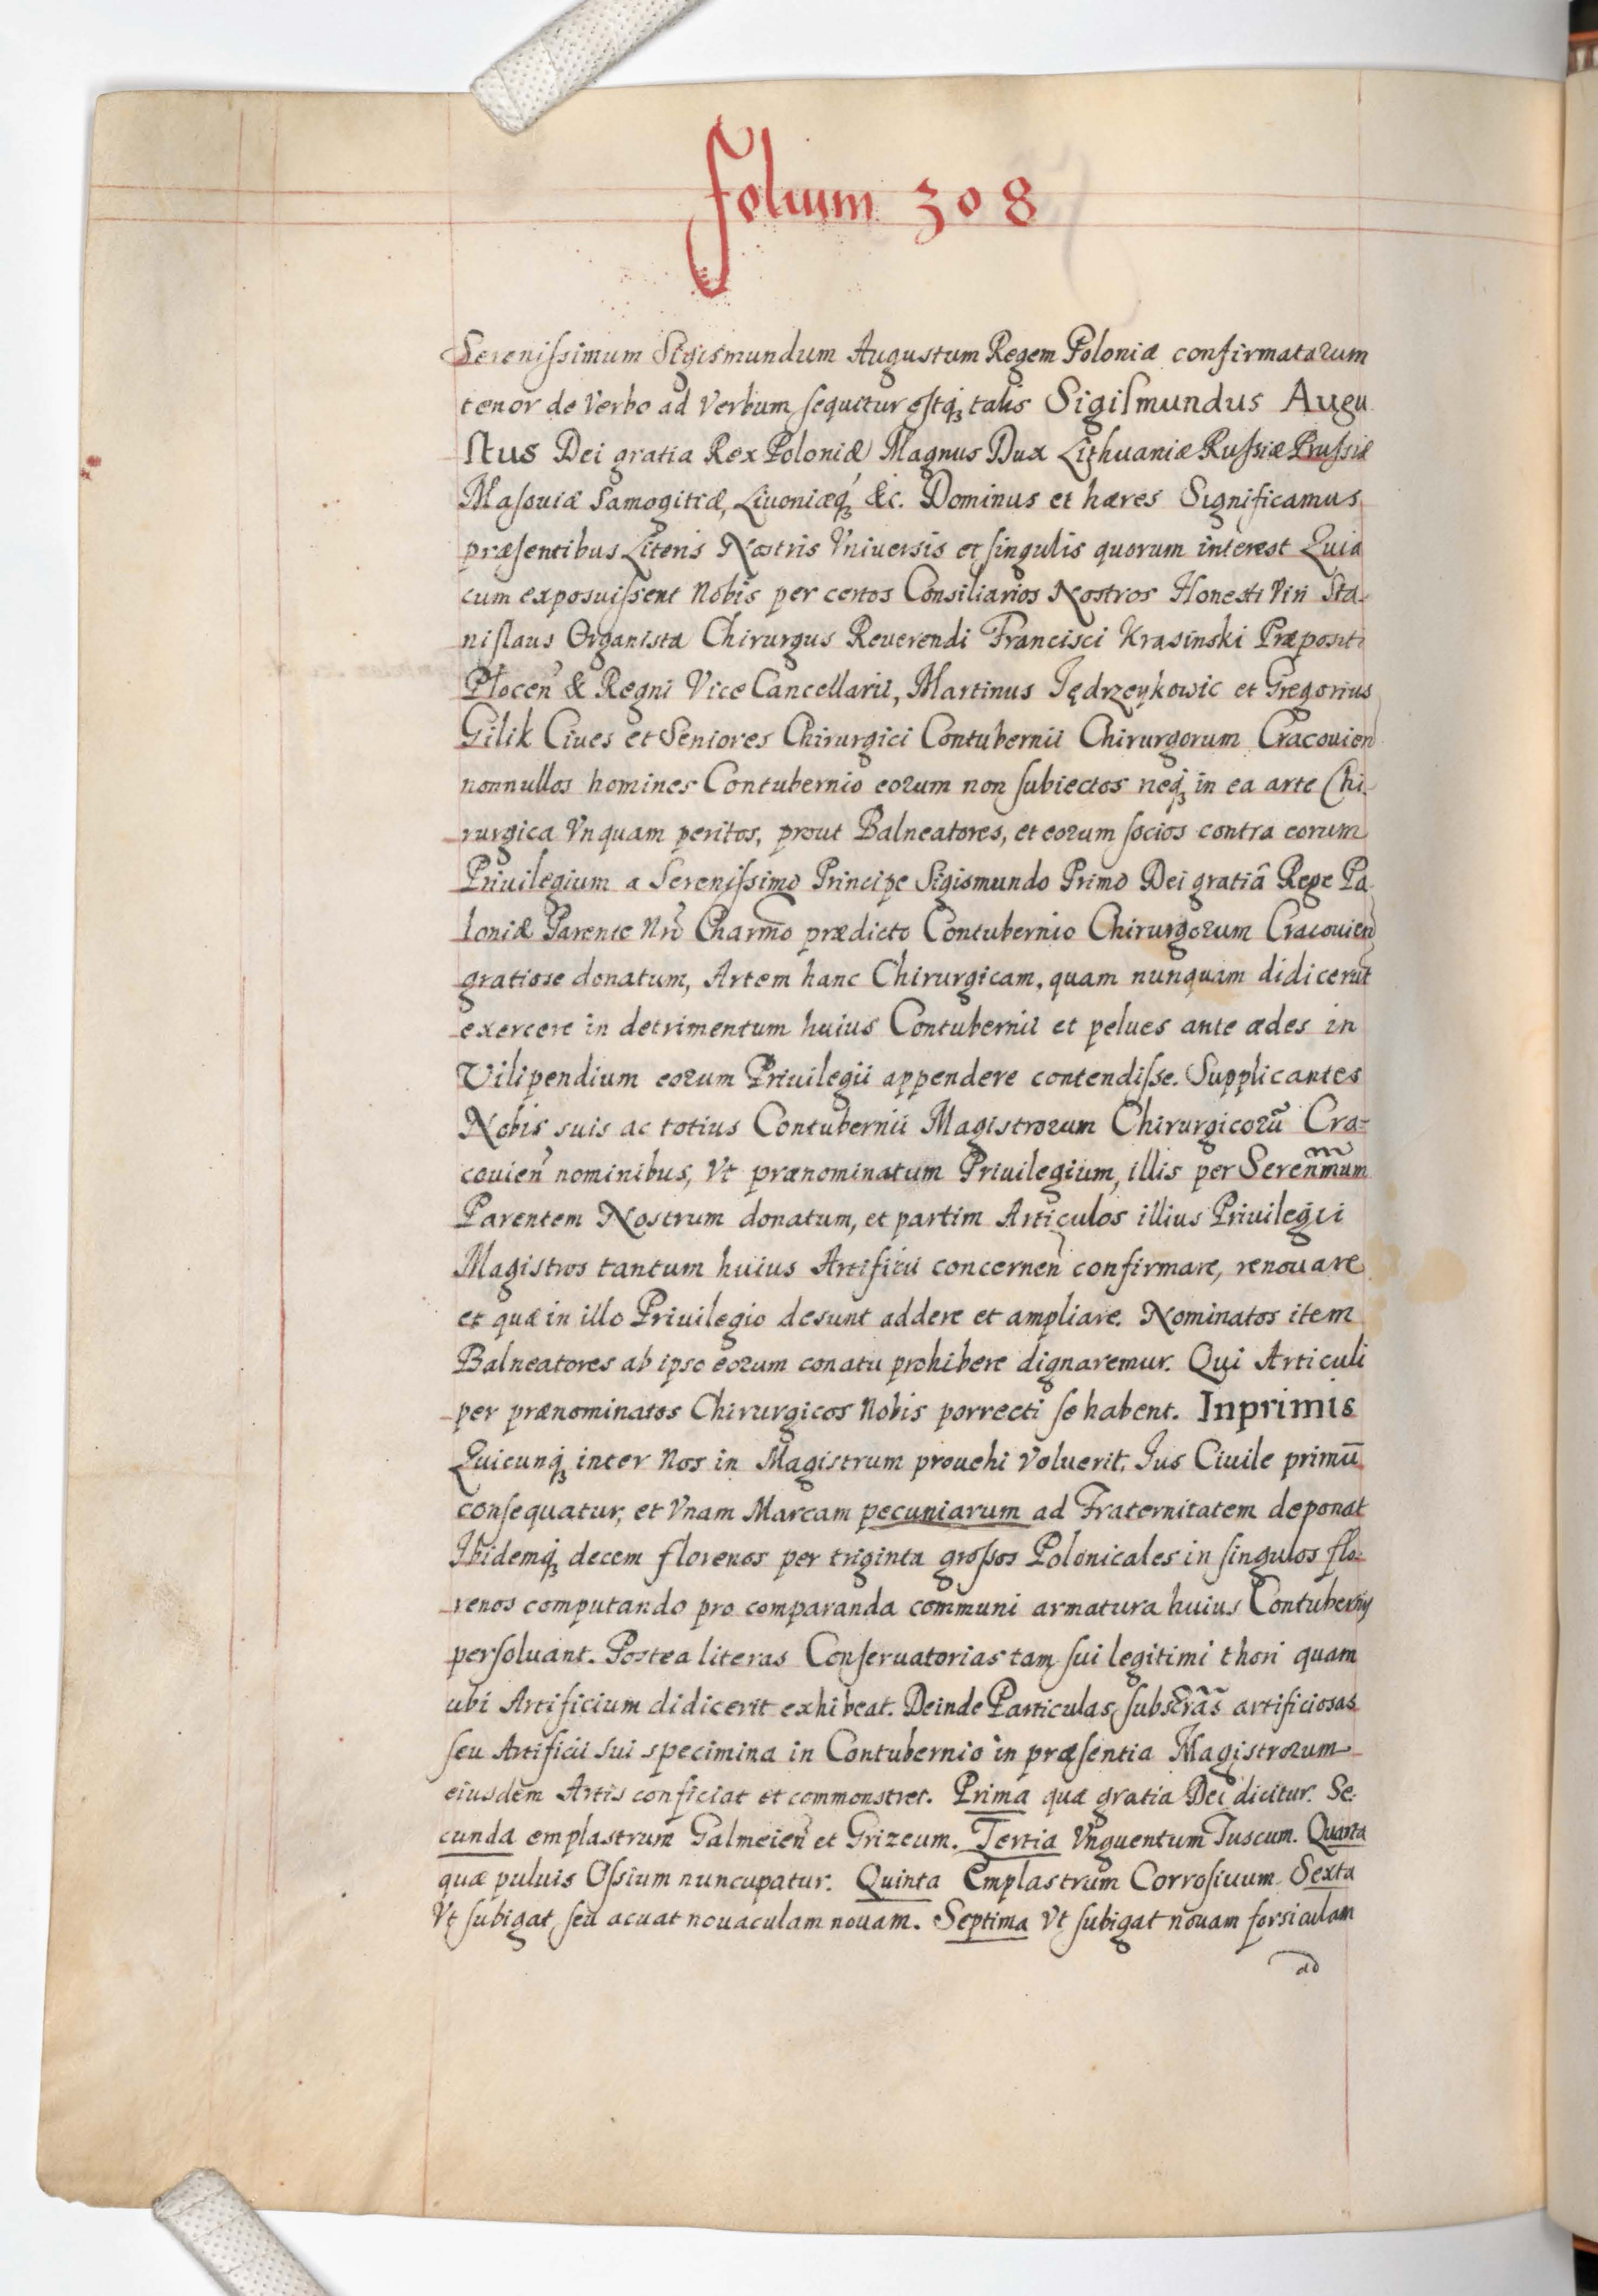 folium 308
Sereniſsimum Sigismundum Augustum Regem Poloniæ confirmatarum
tenor de Verbo ad Verbum ſequitur eſtq́ꝫ talis Sigiſmundus Augu
ſtus Dei gratia Rex Poloniæ Magnus Dux Lithuaniæ Ruſsiæ Pruſsiæ
Maſouiæ Samogitiæ, Liuoniæq́ꝫ &c. Dominus et hæres Significamus
præſentibus Literis Nostris Vniuersis et ſingulis quorum interest Quia
cum exposuiſsent Nobis per certos Consiliarios Nostros Honesti Viri Sta-
niſlaus Organista Chirurgus Reuerendi Francisci Krasinski Præpositi
Plocen̄ & Regni Vice Cancellarii, Martinus Jędrzeykowic et Gregorius
Gilik Ciues et Seniores Chirurgici Contubernii Chirurgorum Cracouien̄
nonnullos homines Contubernio eorum non ſubiectos neq́ꝫ in ea arte Chi-
rurgica Vnquam peritos, prout Balneatores, et eorum ſocios contra eorum
Priuilegium a Sereniſsimo Principe Sigismundo Primo Dei gratiâ Rege Po-
loniæ Parente Nr̄o Charm̄o prædicto Contubernio Chirurgorum Cracouien̄
gratiose donatum, Artem hanc Chirurgicam, quam nunquam didicerūt
exercere in detrimentum huius Contubernii et pelues ante ædes in
Vilipendium eorum Priuilegii appendere contendiſse. Supplicantes
Nobis suis ac totius Contubernii Magistrorum Chirurgicorū Cra-
couien̄ nominibus, Vt prænominatum Priuilegium, illis per Seren̄mum
Parentem Nostrum donatum, et partim Articulos illius Priuilegii
Magistros tantum huius Artificii concernen̄ confirmare, renouare
et quæ in illo Priuilegio desunt addere et ampliare. Nominatos item
Balneatores ab ipso eorum conatu prohibere dignaremur. Qui Articuli
per prænominatos Chirurgicos Nobis porrecti ſe habent. Inprimis
Quicunq́ꝫ inter Nos in Magistrum prouehi Voluerit. Jus Ciuile primū
conſequatur, et Vnam Marcam pecuniarum ad Fraternitatem deponat
Ibidemq́ꝫ decem florenos per triginta groſsos Polonicales in ſingulos flo-
renos computando pro comparanda communi armatura huius Contubernij
perſoluant. Postea literas Conſeruatorias tam ſui legitimi thori quam
ubi Artificium didicerit exhibeat. Deinde Particulas ſubscr̄ās artificiosas
ſeu Artificii sui specimina in Contubernio in præſentia Magistrorum
eiusdem Artis conficiat et commonstret. Prima quæ gratia Dei dicitur. Se-
cunda emplastrum Galmeien̄ et Grizeum. Tertia Vnguentum Fuscum. Quarta
quæ puluis Oſsium nuncupatur. Quinta Emplastrum Corroſiuum. Sexta
Vt ſubigat ſeu acuat nouaculam nouam. Septima Vt ſubigat nouam forsiculam
ad